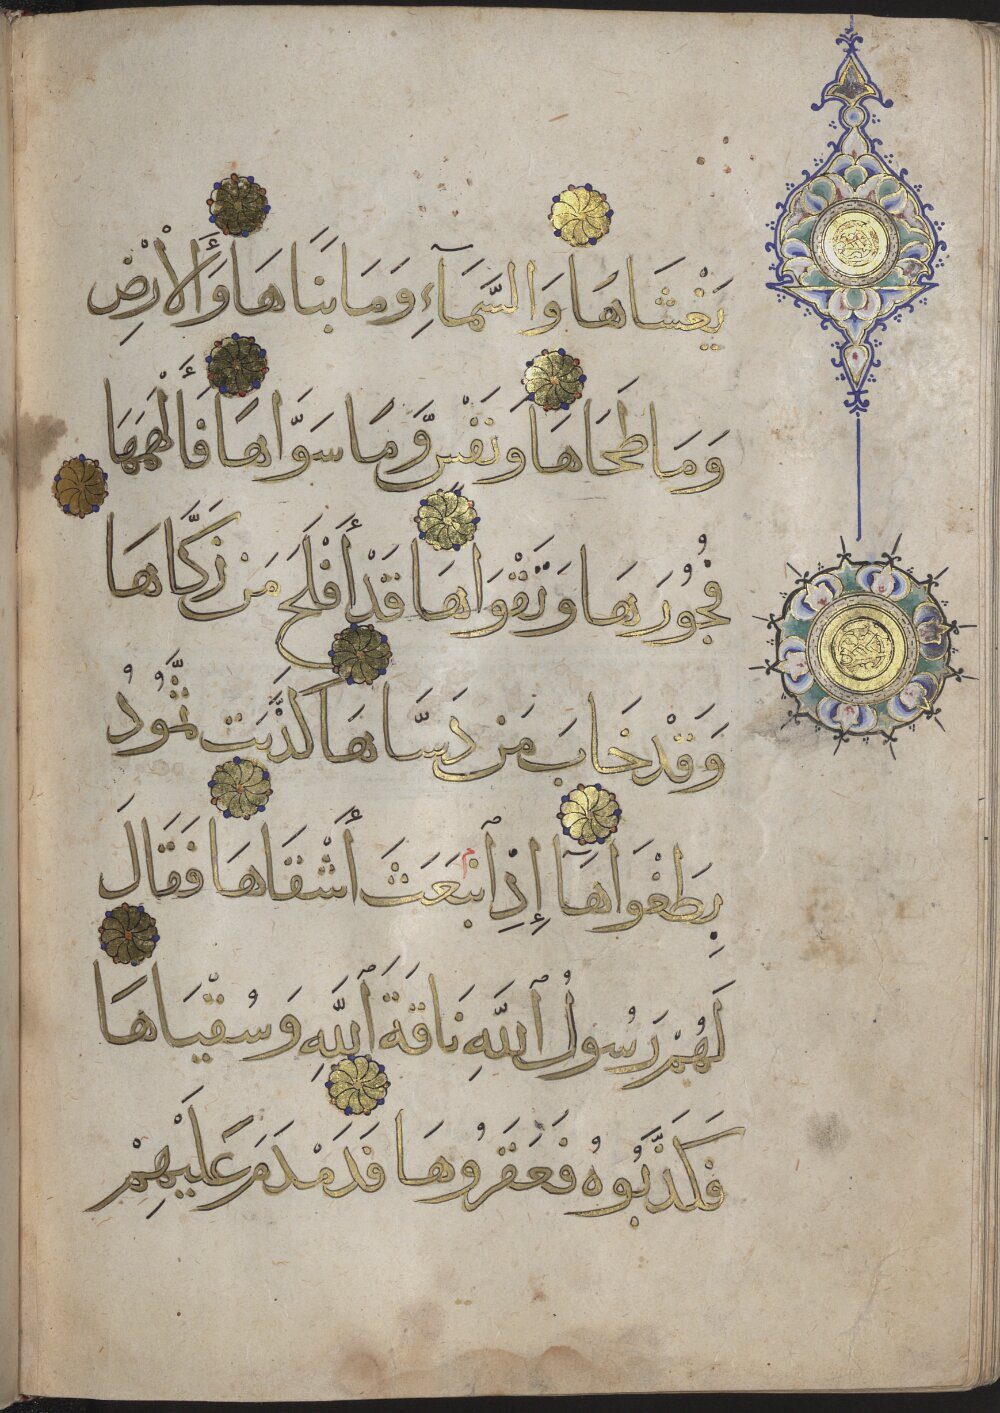 يَغْشَاهَا وَالسَّمَآءِ وَمَا بَنَاهَا وَالْأَرْضِ
وَمَا طَحَاهَا وَنَفْسٍ وَّمَا سَوَّاهَا فَأَلْهَمَهَا
فُجُورَهَا وَتَقْوَاهَا قَدْ أَفْلَحَ مَن زَكَّاهَا
وَقَدْ خَابَ مَن دَسَّاهَا كَذَّبَت ثَّمُودُ
بِطَغْوَاهَآ إِذِ ٱنبَعَثَ أَشْقَاهَا فَقَالَ
لَهُمْ رَسُولُ ٱللَّهِ نَاقَةَ ٱللَّهِ وَسُقْيَاهَا
فَكَذَّبُوهُ فَعَقَرُوهَا فَدَمْدَمَ عَلَيْهِمْ